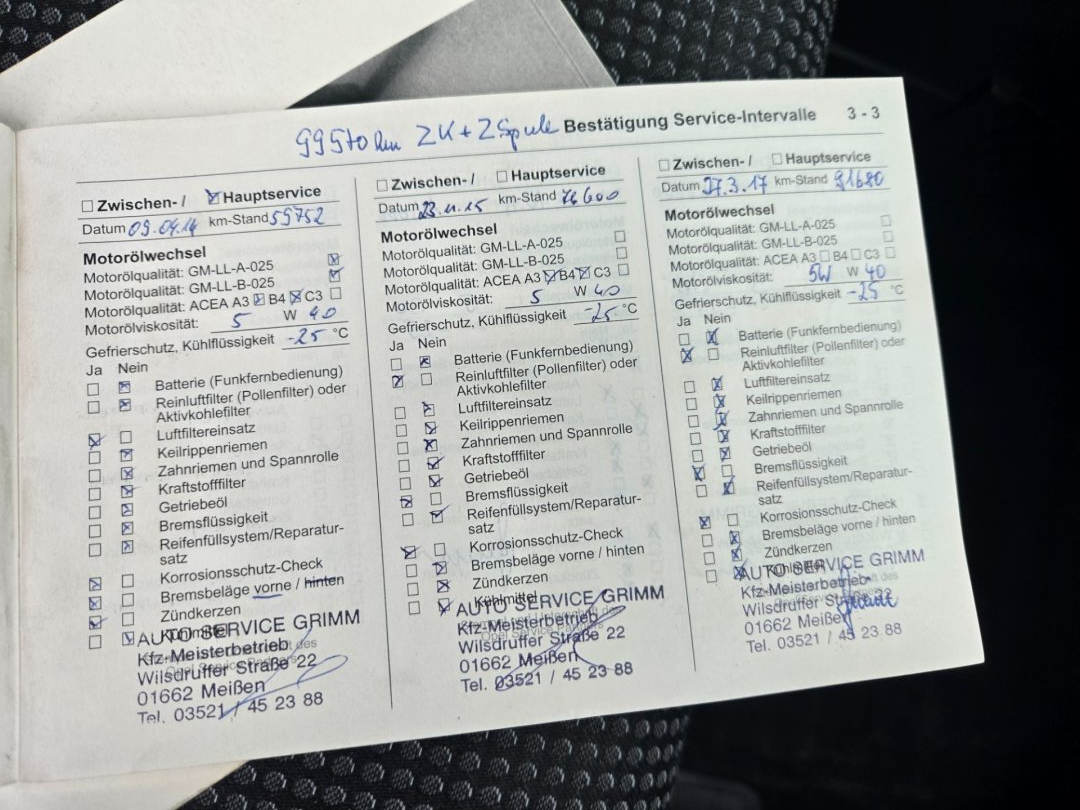 99570 km ZK + Z Spule
Bestätigung Service-Intervalle 3 - 3
☐ Zwischen- / ☒ Hauptservice
Datum 09.04.14 km-Stand 59752
Motorölwechsel
Motorölqualität: GM-LL-A-025 ☒
Motorölqualität: GM-LL-B-025 ☒
Motorölqualität: ACEA A3 ☒ B4 ☒ C3 ☐
Motorölviskosität: 5 W 40
Gefrierschutz, Kühlflüssigkeit -25 °C
Ja Nein
☐ ☒ Batterie (Funkfernbedienung)
☐ ☒ Reinluftfilter (Pollenfilter) oder
Aktivkohlefilter
☒ ☐ Luftfiltereinsatz
☐ ☒ Keilrippenriemen
☐ ☒ Zahnriemen und Spannrolle
☐ ☒ Kraftstofffilter
☐ ☒ Getriebeöl
☐ ☒ Bremsflüssigkeit
☐ ☒ Reifenfüllsystem/Reparatur-
satz
☒ ☐ Korrosionsschutz-Check
☒ ☐ Bremsbeläge vorne / hinten
☒ ☐ Zündkerzen
☐ ☒
AUTO SERVICE GRIMM
Kfz-Meisterbetrieb
Wilsdruffer Straße 22
01662 Meißen
Tel. 03521 / 45 23 88
☐ Zwischen- / ☐ Hauptservice
Datum 23.11.15 km-Stand 76600
Motorölwechsel
Motorölqualität: GM-LL-A-025 ☐
Motorölqualität: GM-LL-B-025 ☐
Motorölqualität: ACEA A3 ☒ B4 ☒ C3 ☐
Motorölviskosität: 5 W 40
Gefrierschutz, Kühlflüssigkeit -25 °C
Ja Nein
☐ ☒ Batterie (Funkfernbedienung)
☒ ☐ Reinluftfilter (Pollenfilter) oder
Aktivkohlefilter
☐ ☒ Luftfiltereinsatz
☐ ☒ Keilrippenriemen
☐ ☒ Zahnriemen und Spannrolle
☐ ☒ Kraftstofffilter
☐ ☒ Getriebeöl
☒ ☐ Bremsflüssigkeit
☐ ☒ Reifenfüllsystem/Reparatur-
satz
☒ ☐ Korrosionsschutz-Check
☐ ☒ Bremsbeläge vorne / hinten
☐ ☒ Zündkerzen
☐ ☒ Kühlmittel
AUTO SERVICE GRIMM
Kfz-Meisterbetrieb
Wilsdruffer Straße 22
01662 Meißen
Tel. 03521 / 45 23 88
☐ Zwischen- / ☐ Hauptservice
Datum 27.3.17 km-Stand 91680
Motorölwechsel
Motorölqualität: GM-LL-A-025 ☐
Motorölqualität: GM-LL-B-025 ☐
Motorölqualität: ACEA A3 ☐ B4 ☐ C3 ☐
Motorölviskosität: 5W W 40
Gefrierschutz, Kühlflüssigkeit -25 °C
Ja Nein
☐ ☒ Batterie (Funkfernbedienung)
☒ ☐ Reinluftfilter (Pollenfilter) oder
Aktivkohlefilter
☐ ☒ Luftfiltereinsatz
☐ ☒ Keilrippenriemen
☐ ☒ Zahnriemen und Spannrolle
☐ ☒ Kraftstofffilter
☐ ☒ Getriebeöl
☒ ☐ Bremsflüssigkeit
☐ ☒ Reifenfüllsystem/Reparatur-
satz
☒ ☐ Korrosionsschutz-Check
☐ ☒ Bremsbeläge vorne / hinten
☐ ☒ Zündkerzen
☐ ☒ Kühlmittel
AUTO SERVICE GRIMM
Kfz-Meisterbetrieb
Wilsdruffer Straße 22
01662 Meißen
Tel. 03521 / 45 23 88